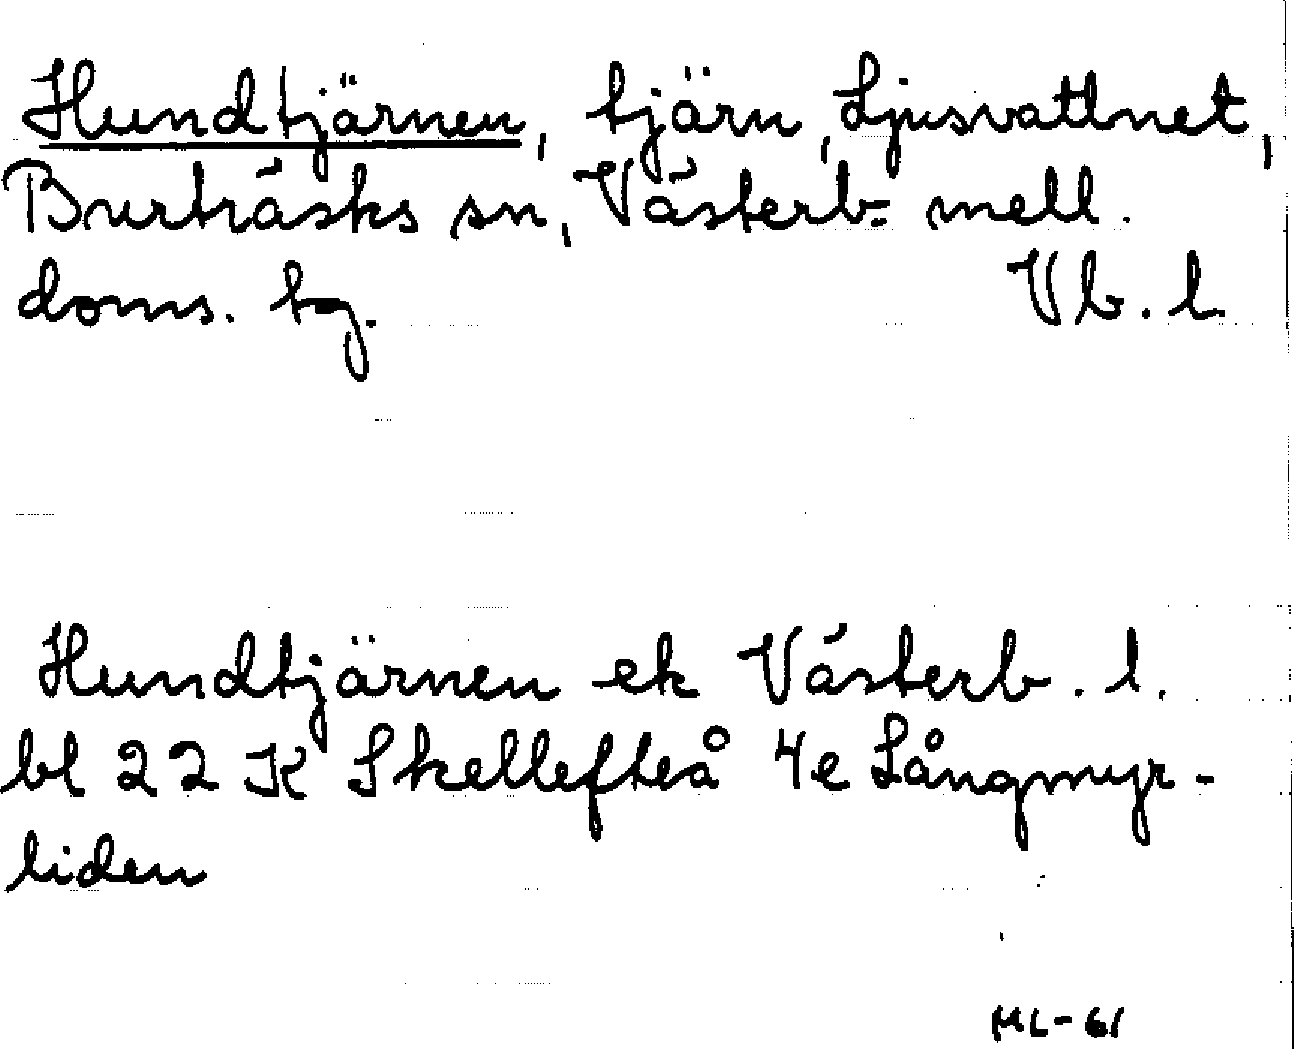 Hundtjärnen, tjärn, Ljusvattnet,
Burträsks sn, Västerb- mell.
doms. tg. Vb. l.
Hundtjärnen ek Västerb. l.
bl 22 K Skellefteå 4e Långmyr-
liden
ML-61